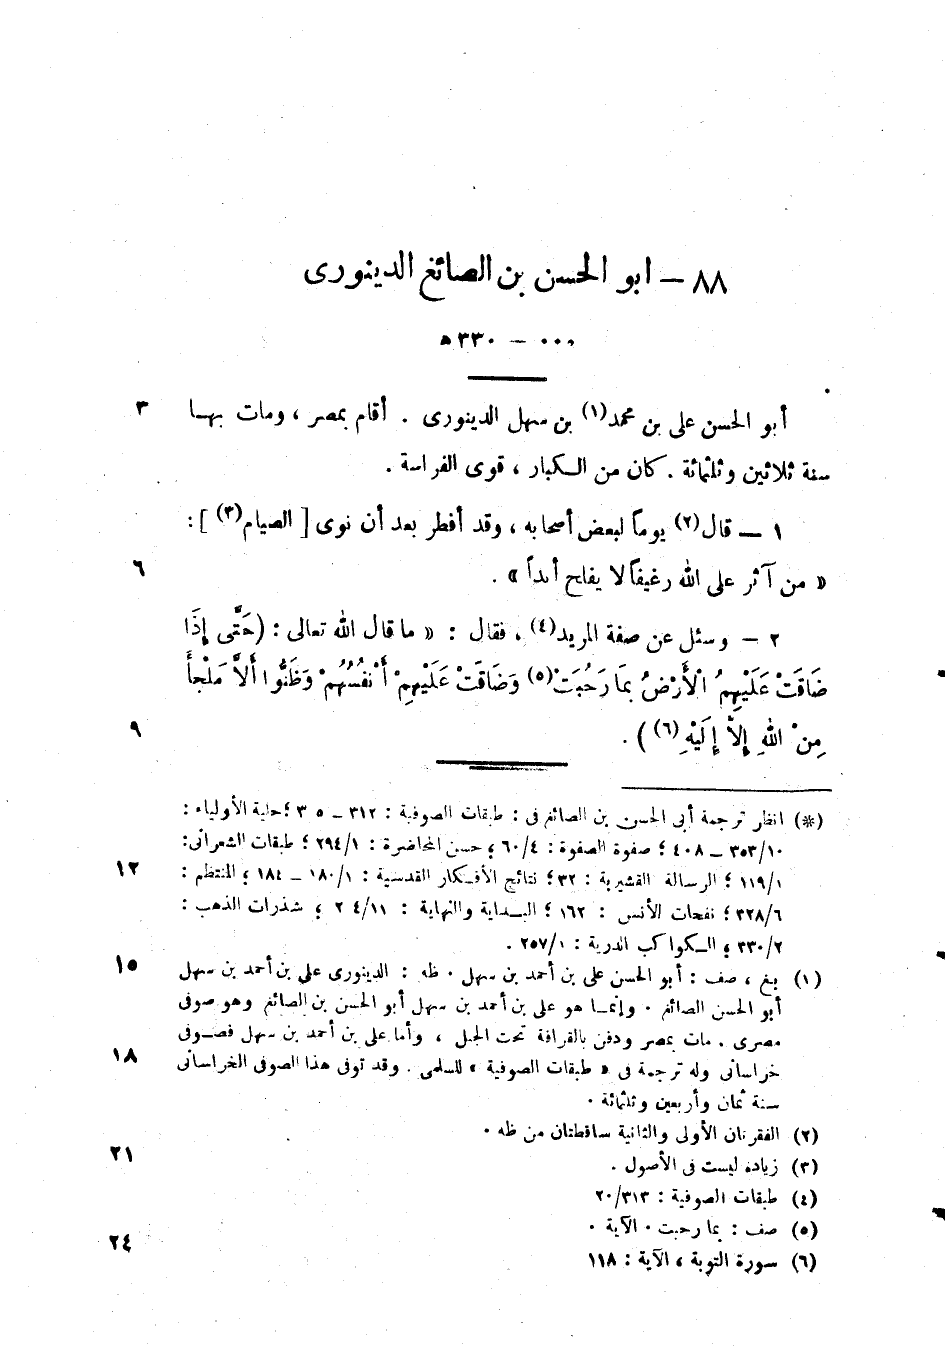 ٨٨ – ابو الحسن بن الصائغ الدينورى
٠٠٠ – ٣٣٠ه
أبو الحسن على بن محمد(١) بن سهل الدينورى . أقام بمصر ، ومات بهـا ٣
سنة ثلاثين وثلثمائة . كان من الكبار ، قوى الفراسة .
١ – قال(٢) يوماً لبعض أصحابه ، وقد أفطر بعد أن نوى [ الصيام(٣) ] :
« من آثر على الله رغيفاً لا يفلح أبداً » . ٦
٢ – وسئل عن صفة المريد(٤) ، فقال : « ما قال الله تعالى : (حَتَّى إِذَا
ضَاقَتْ عَلَيْهِمُ الْأَرْضُ بِمَا رَحُبَتْ(٥) وَضَاقَتْ عَلَيْهِمْ أَنْفُسُهُمْ وَظَنُّوا أَلاَّ مَلْجَأَ
مِنْ اللهِ إِلاَّ إِلَيْهِ(٦) ) . ٩
(*) انظر ترجمة أبى الحسن بن الصائغ فى : طبقات الصوفية : ٣١٢ – ٣٠٥ ؛ حلية الأولياء :
٣٥٣/١٠ – ٤٠٨ ؛ صفوة الصفوة : ٦٠/٤ ؛ حسن المحاضرة : ٢٩٤/١ ؛ طبقات الشعرانى:
١١٩/١ ؛ الرسالة القشيرية : ٣٢ ؛ نتائج الأفكار القدسية : ١٨٠/١ – ١٨٤ ؛ المنتظم : ١٢
٣٢٨/٦ ؛ نفحات الأنس : ١٦٢ ؛ البداية والنهاية : ٢٠٤/١١ ؛ شذرات الذهب :
٣٣٠/٢ ؛ الكواكب الدرية : ٢٥٧/١ .
(١) بغ ، صف : أبو الحسن على بن أحمد بن سهل . ظه : الدينورى على بن أحمد بن سهل ١٥
أبو الحسن الصائغ . وإنما هو على بن أحمد بن سهل أبو الحسن بن الصائغ وهو صوفى
مصرى . مات بمصر ودفن بالقرافة تحت الجبل ، وأما على بن أحمد بن سهل فصوفى
خراسانى وله ترجمة فى « طبقات الصوفية » للسلمى . وقد توفى هذا الصوفى الخراسانى ١٨
سنة ثمان وأربعين وثلثمائة .
(٢) الفقرتان الأولى والثانية ساقطتان من ظه .
(٣) زيادة ليست فى الأصول . ٢١
(٤) طبقات الصوفية : ٢٠/٣١٣
(٥) صف : بما رحبت . الآية .
(٦) سورة التوبة ، الآية : ١١٨ ٢٤